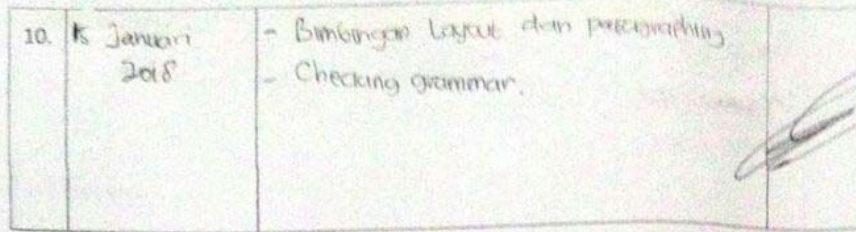 10. 15 Januari - Bimbingan Layout dan paragraphing
2018 - Checking grammar.